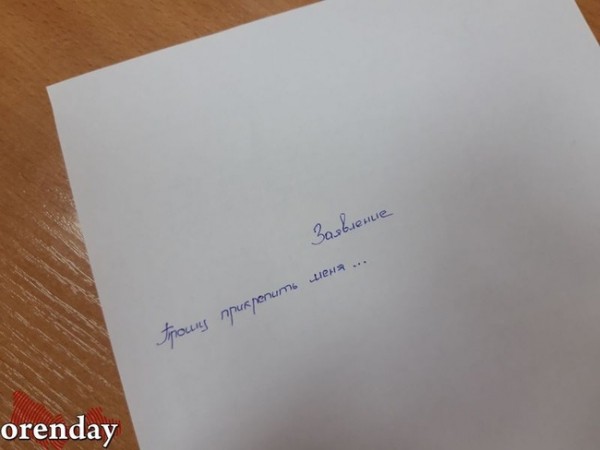 Заявление
Прошу прикрепить меня...
orenday